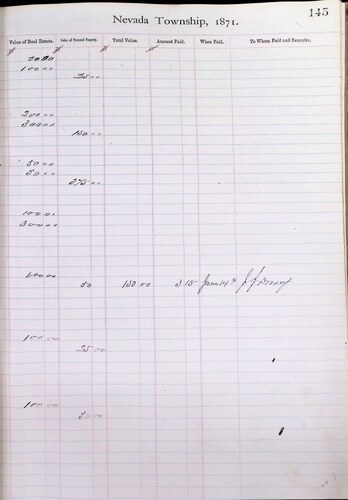 145
Nevada Township, 1871.
Value of Real Estate. Value of Personal Property. Total Value. Amount Paid. When Paid. To Whom Paid and Remarks.
100 00
25 00
200 00
300 00
150 00
50 00
50 00
275 00
100 00
300 00
100 00
50 150 00 3 15 June 14th J J Dorsey
100 00
25 00
100 00
50 00